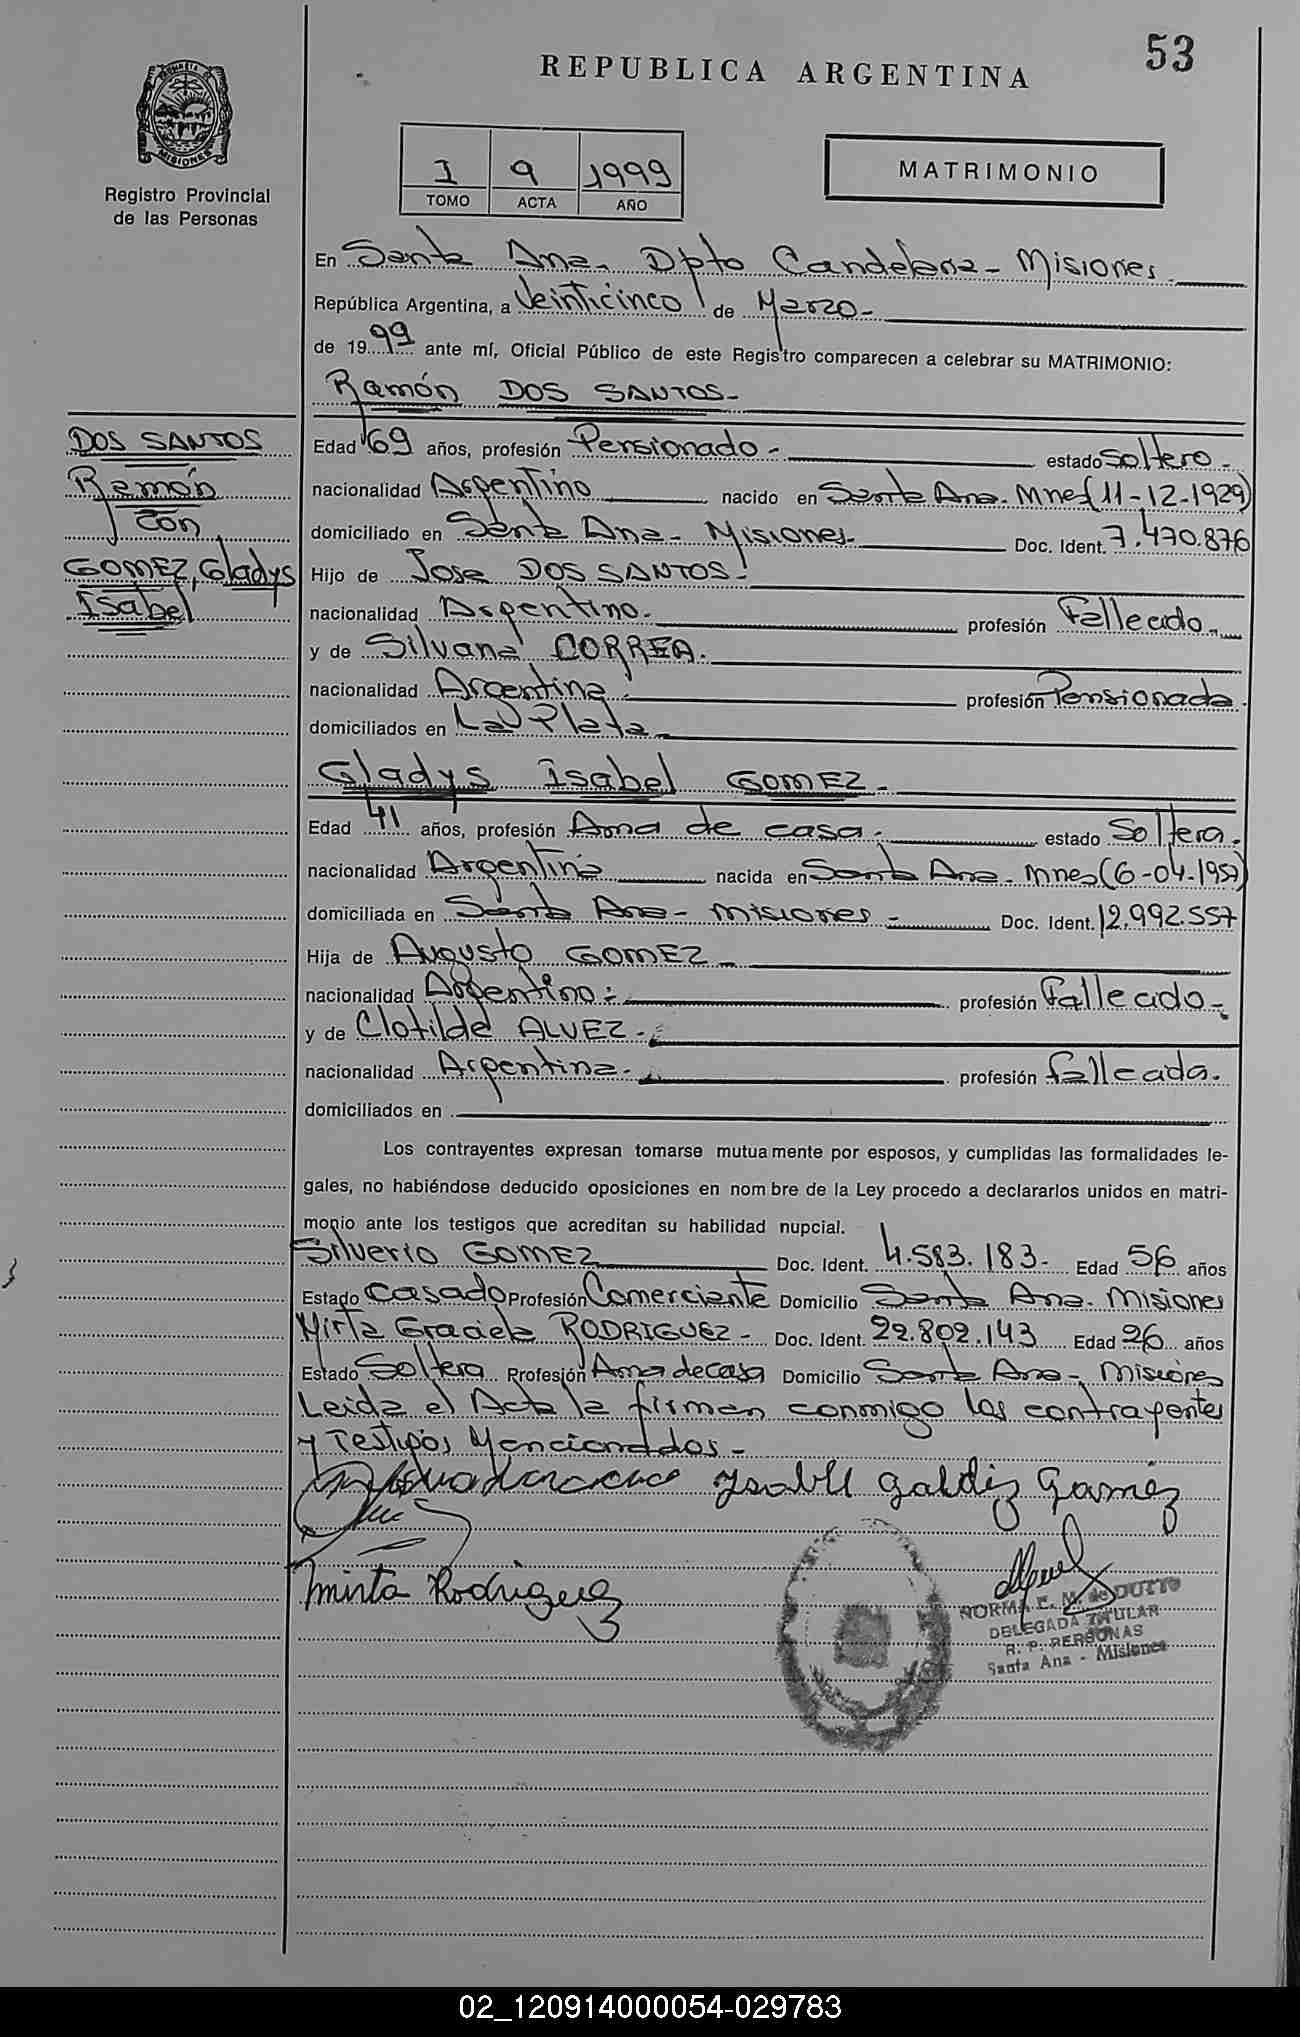 53
REPUBLICA ARGENTINA
MISIONES
Registro Provincial
de las Personas
I 9 1999
TOMO ACTA AÑO
MATRIMONIO
En Santa Ana. Dpto Candelaria - Misiones.
República Argentina, a Veinticinco de Marzo.-
de 1999 ante mí, Oficial Público de este Registro comparecen a celebrar su MATRIMONIO:
Ramón DOS SANTOS.-
DOS SANTOS
Ramón
con
GOMEZ, Gladys
Isabel
Edad 69 años, profesión Pensionado.- estado Soltero.-
nacionalidad Argentino nacido en Santa Ana. Mnes (11-12-1929)
domiciliado en Santa Ana - Misiones. Doc. Ident. 7.470.876
Hijo de Jose DOS SANTOS.
nacionalidad Argentino. profesión Fallecido.
y de Silvana CORREA.
nacionalidad Argentina profesión Pensionada.
domiciliados en La Plata.
Gladys Isabel GOMEZ.-
Edad 41 años, profesión Ama de casa. estado Soltera.
nacionalidad Argentina nacida en Santa Ana. Mnes (6-04-1957)
domiciliada en Santa Ana - Misiones - Doc. Ident. 12.992.557
Hija de Augusto GOMEZ -
nacionalidad Argentino.- profesión Falleado.-
y de Clotilde ALVEZ.-
nacionalidad Argentina. profesión falleada.
domiciliados en
Los contrayentes expresan tomarse mutuamente por esposos, y cumplidas las formalidades le-
gales, no habiéndose deducido oposiciones en nombre de la Ley procedo a declararlos unidos en matri-
monio ante los testigos que acreditan su habilidad nupcial.
Silverio GOMEZ Doc. Ident. 4.583.183.- Edad 56 años
Estado Casado Profesión Comerciante Domicilio Santa Ana. Misiones
Mirta Graciela RODRIGUEZ - Doc. Ident. 22.802.143 Edad 26 años
Estado Soltera Profesión Ama de casa Domicilio Santa Ana - Misiones
Leida el Acta la firman conmigo los contrayentes
y Testigos Mencionados -
Ysabll Galdiz Gamez
mirta Rodriguez
NORMA E. M. de DUTTO
DELEGADA TITULAR
R. P. PERSONAS
Santa Ana - Misiones
02_120914000054-029783